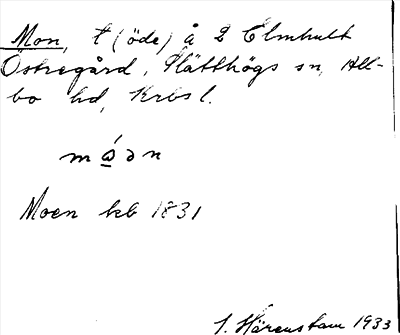 Mon, t (öde) å 2 Elmhult
Östregård, Slätthögs sn, All-
bo hd, Krbs l.
mó̱ən
Moen kb 1831
S. Härenstam 1933